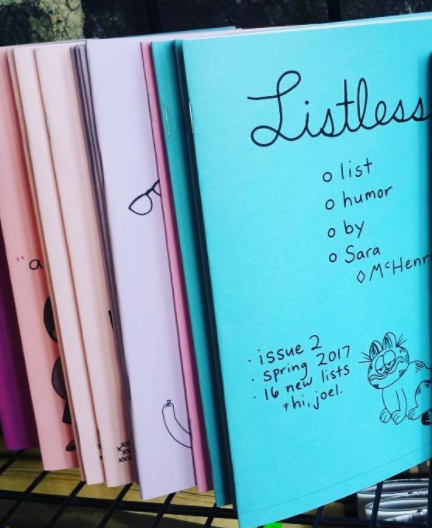 Listless
o list
o humor
o by
o Sara
◊ McHenr
· issue 2
· spring 2017
· 16 new lists
+hi, joel.
"a
xxx
xxx